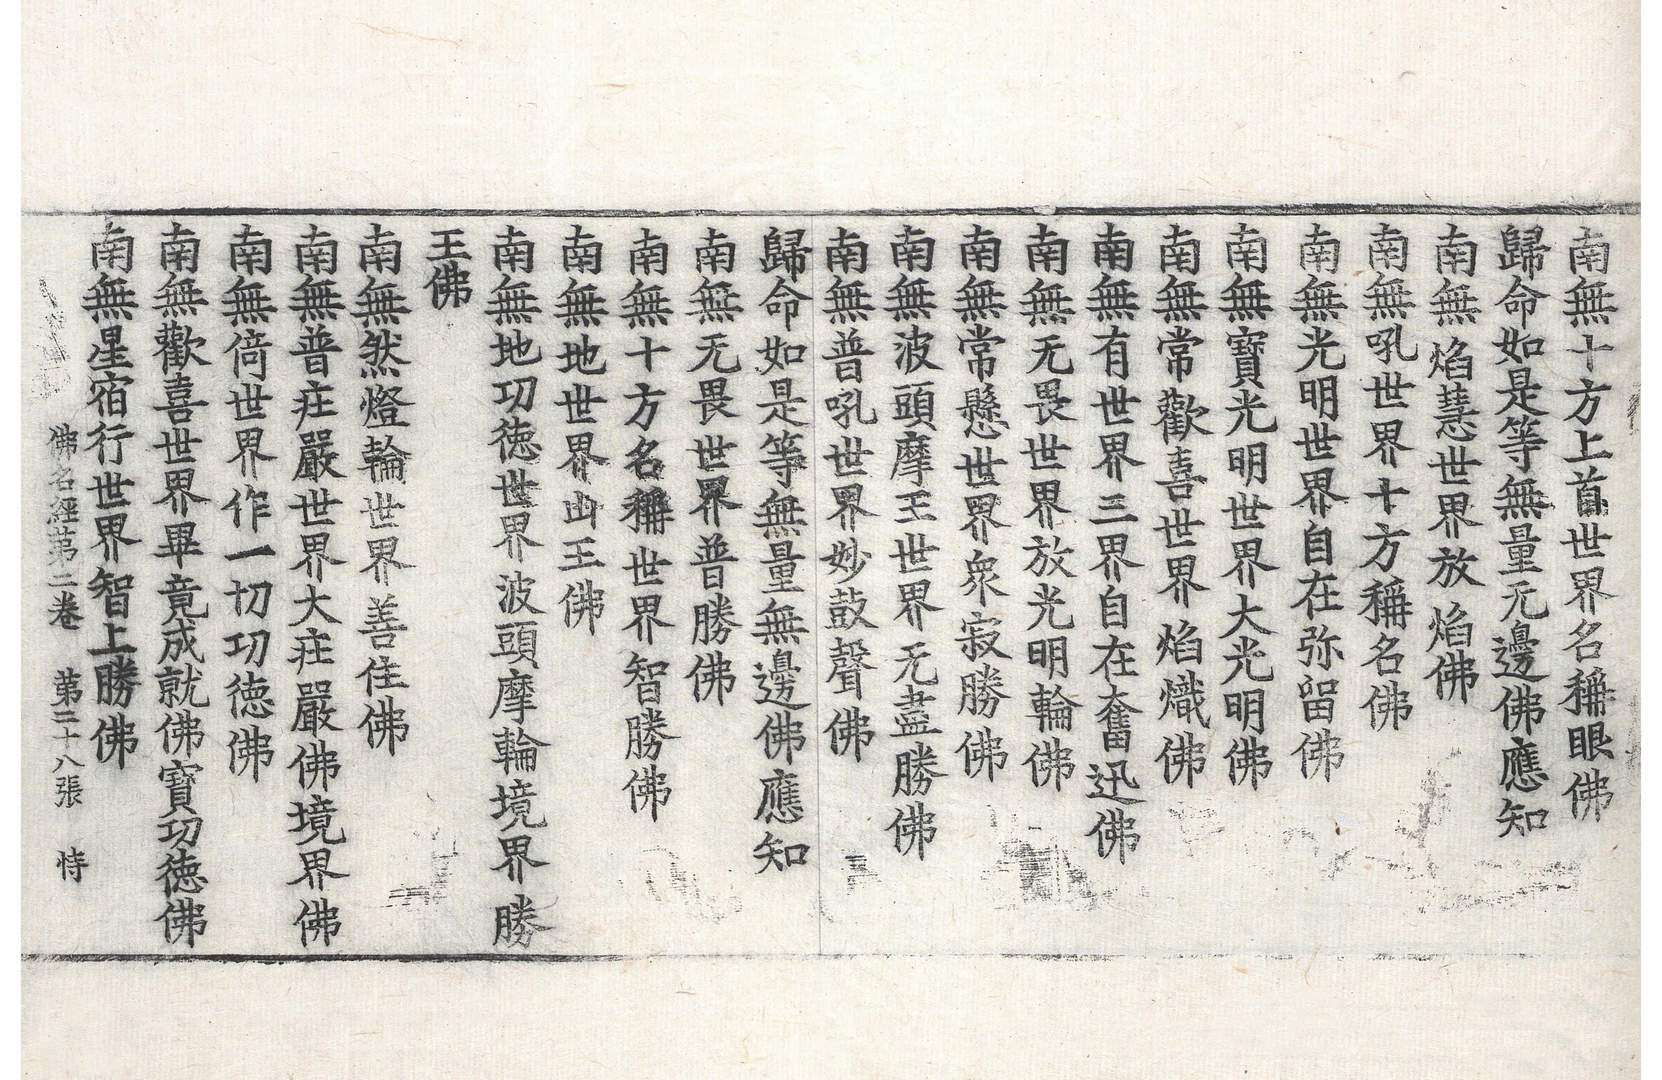 南無十方上首世界名稱眼佛
歸命如是等無量无邊佛應知
南無焰慧世界放焰佛
南無吼世界十方稱名佛
南無光明世界自在弥留佛
南無寶光明世界大光明佛
南無常歡喜世界焰熾佛
南無有世界三界自在奮迅佛
南無无畏世界放光明輪佛
南無常懸世界衆寂勝佛
南無波頭摩王世界无盡勝佛
南無普吼世界妙鼓聲佛
歸命如是等無量無邊佛應知
南無无畏世界普勝佛
南無十方名稱世界智勝佛
南無地世界山王佛
南無地功徳世界波頭摩輪境界勝
王佛
南無然燈輪世界善住佛
南無普庄嚴世界大庄嚴佛境界佛
南無倚世界作一切功徳佛
南無歡喜世界畢竟成就佛寶功徳佛
南無星宿行世界智上勝佛
佛名經第二卷 第二十八張 恃